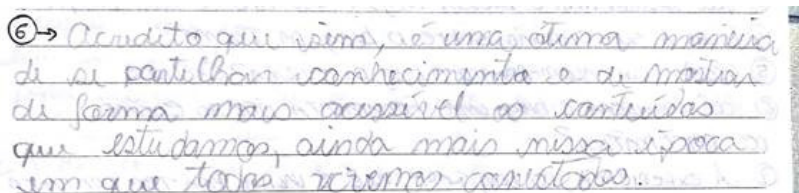 ⑥→ Acredito que sim, é uma ótima maneira
de se partilhar conhecimento e de mostrar
de forma mais acessível os conteúdos
que estudamos, ainda mais nessa época
em que todos vivemos conectados.